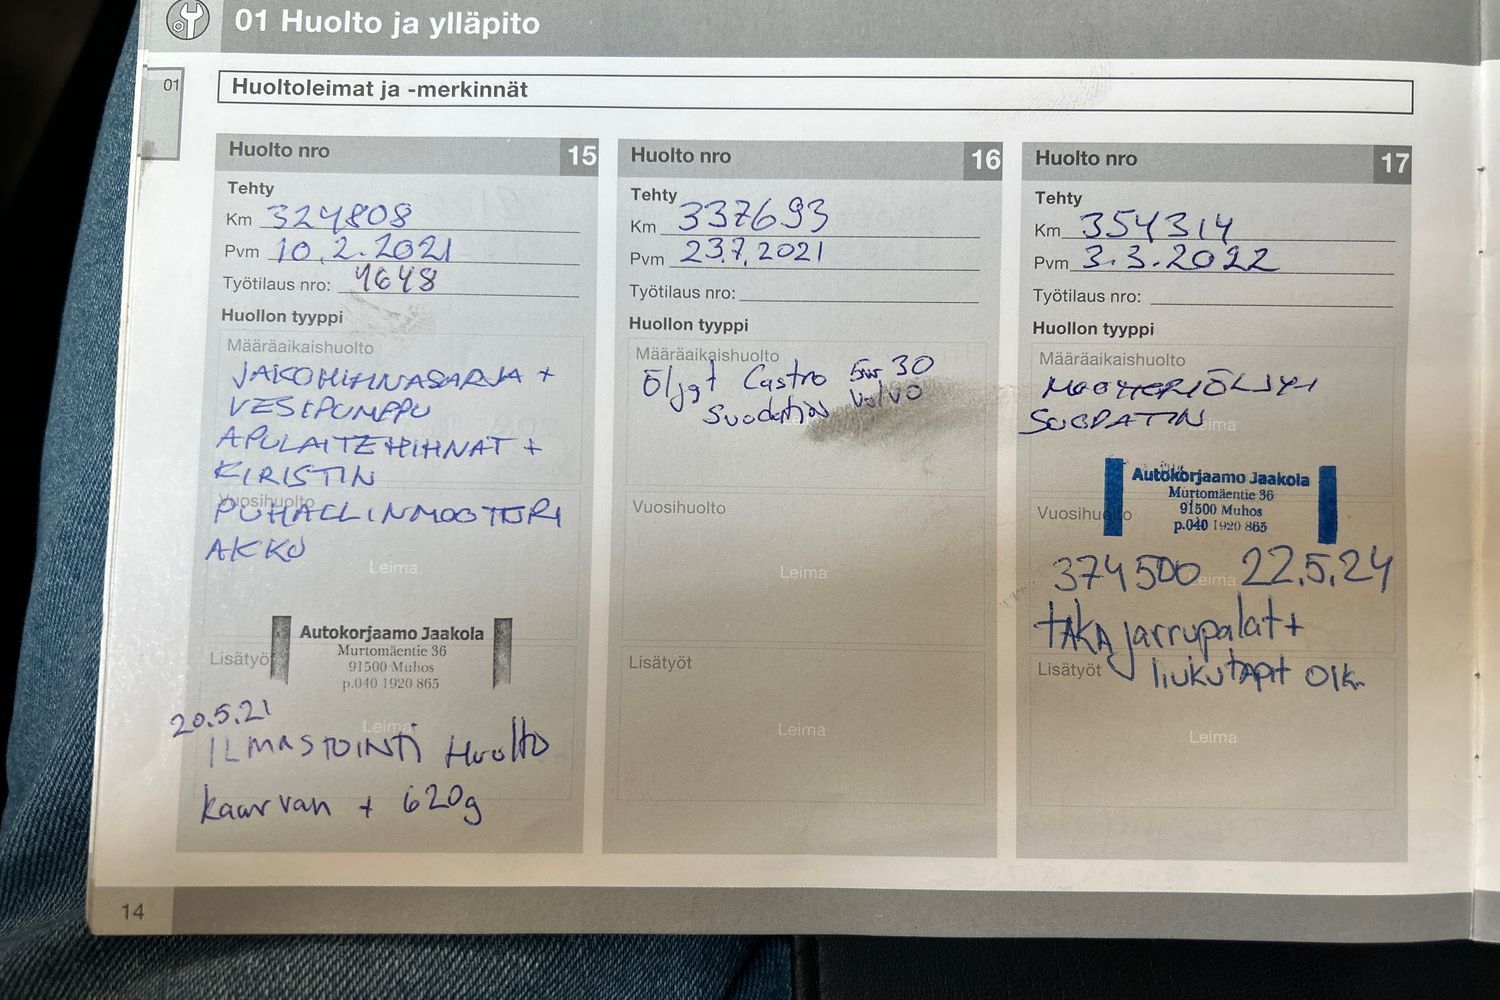 01 Huolto ja ylläpito
01
Huoltoleimat ja -merkinnät
Huolto nro 15
Tehty
Km 324808
Pvm 10.2.2021
Työtilaus nro: 4648
Huollon tyyppi
Määräaikaishuolto
JAKOHIHNASARJA +
VESIPUMPPU
APULAITEHIHNAT +
KIRISTIN
Vuosihuolto
PUHALLINMOOTTORI
AKKU
Leima
Autokorjaamo Jaakola
Murtomäentie 36
91500 Muhos
p.040 1920 865
Lisätyö
20.5.21
Leima
ILMASTOINTI Huolto
kaarvan + 620g
Huolto nro 16
Tehty
Km 337693
Pvm 23.7.2021
Työtilaus nro:
Huollon tyyppi
Määräaikaishuolto
Öljyt Castro 5w30
Suodatin Volvo
Vuosihuolto
Leima
Lisätyöt
Leima
Huolto nro 17
Tehty
Km 354314
Pvm 3.3.2022
Työtilaus nro:
Huollon tyyppi
Määräaikaishuolto
MOOTTORIÖLJY
SUODATIN
Autokorjaamo Jaakola
Murtomäentie 36
91500 Muhos
p.040 1920 865
Vuosihuolto
374500 22.5.24
Leima
TAKA jarrupalat +
Lisätyöt
liukutapit OK.
Leima
14